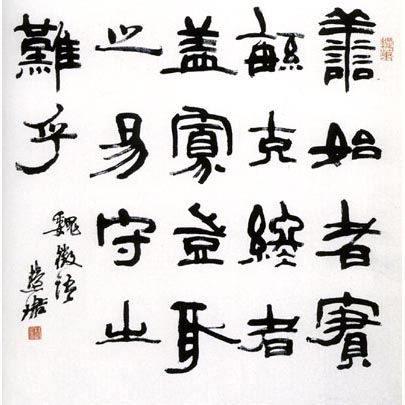 善始者實
繁克終者
盖寡豈取
之易守之
難乎
魏徵語